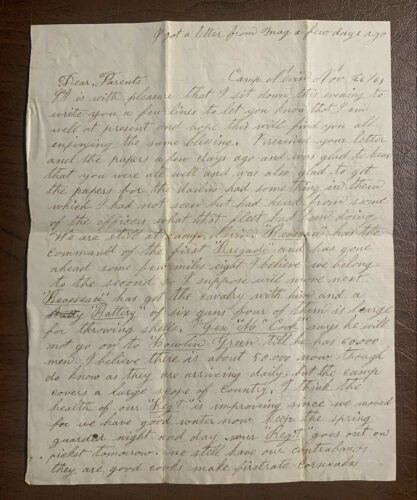 I got a letter from Mag a few days ago
Camp Nevin Nov 26/61
Dear Parents
It is with pleasure that I sit down this evening to
write you a few lines to let you know that I am
well at present and hope this will find you all
enjoying the same blessing. I received your letter
and the papers a few days ago and was glad to hear
that you were all well and was also glad to get
the papers for the dailies had something in them
which I had not seen but had heard from some
of the officers what that fleet had been doing
We are still at Camp "Rosseau" has the
command of the first "Bregade" and has gone
ahead some few miles eight I believe we belong
to the second so I suppose will move next
"Rosseau" has got the cavalry with him and a
"Battery" of six guns four of them is large
for throwing shells. "Gen Mc Cook" says he will
not go on to "Bowlin Green" till he has 60.000
men. I believe there is about 50.000 now though
do know as they are arriving daily. but the camp
covers a large scope of country. I think the
health of our "Regt" is improving since we moved
for we have good water now keep the spring
guarded night and day. our "Regt" goes out on
picket tomorrow. we still have our contrabans
they are good cooks make firstrate corncakes